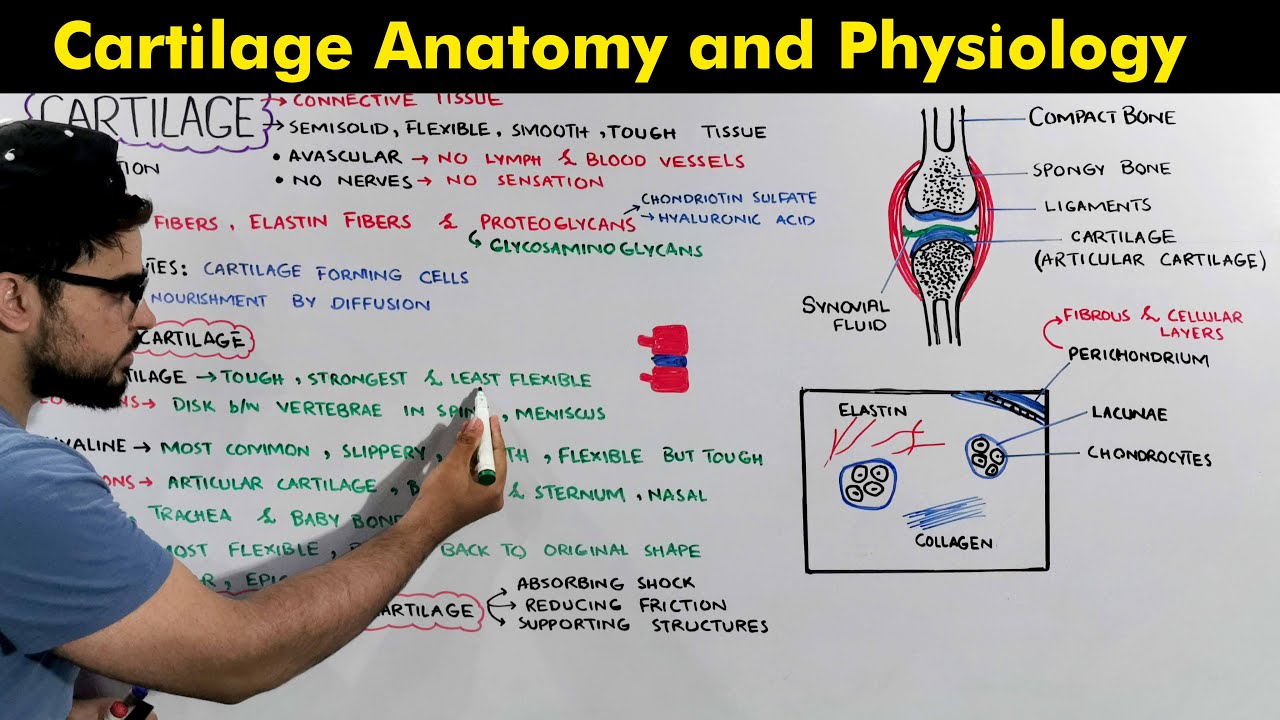 Cartilage Anatomy and Physiology
CARTILAGE → CONNECTIVE TISSUE
→ SEMISOLID, FLEXIBLE, SMOOTH, TOUGH TISSUE
• AVASCULAR → NO LYMPH & BLOOD VESSELS
• NO NERVES → NO SENSATION
TION
FIBERS, ELASTIN FIBERS & PROTEOGLYCANS
→ CHONDRIOTIN SULFATE
→ HYALURONIC ACID
GLYCOSAMINOGLYCANS
TES: CARTILAGE FORMING CELLS
NOURISHMENT BY DIFFUSION
CARTILAGE
TILAGE → TOUGH, STRONGEST & LEAST FLEXIBLE
→ DISK b/w VERTEBRAE IN SPIN , MENISCUS
YALINE → MOST COMMON, SLIPPERY, TH, FLEXIBLE BUT TOUGH
ONS → ARTICULAR CARTILAGE, B & STERNUM, NASAL
, TRACHEA & BABY BON
MOST FLEXIBLE, BACK TO ORIGINAL SHAPE
R, EPI
ARTILAGE
→ ABSORBING SHOCK
→ REDUCING FRICTION
→ SUPPORTING STRUCTURES
COMPACT BONE
SPONGY BONE
LIGAMENTS
CARTILAGE
(ARTICULAR CARTILAGE)
SYNOVIAL
FLUID
FIBROUS & CELLULAR
LAYERS
PERICHONDRIUM
ELASTIN
LACUNAE
CHONDROCYTES
COLLAGEN